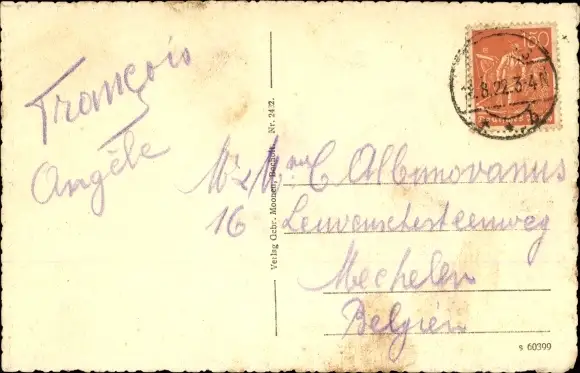 François
Angèle
Verlag Gebr. Moonen, Bocholt. Nr. 2432.
150
8.22.3-4N
b
Mr & Mme C Albonovanus
16 Leuvenschesteenweg
Mechelen
Belgien
s 60399